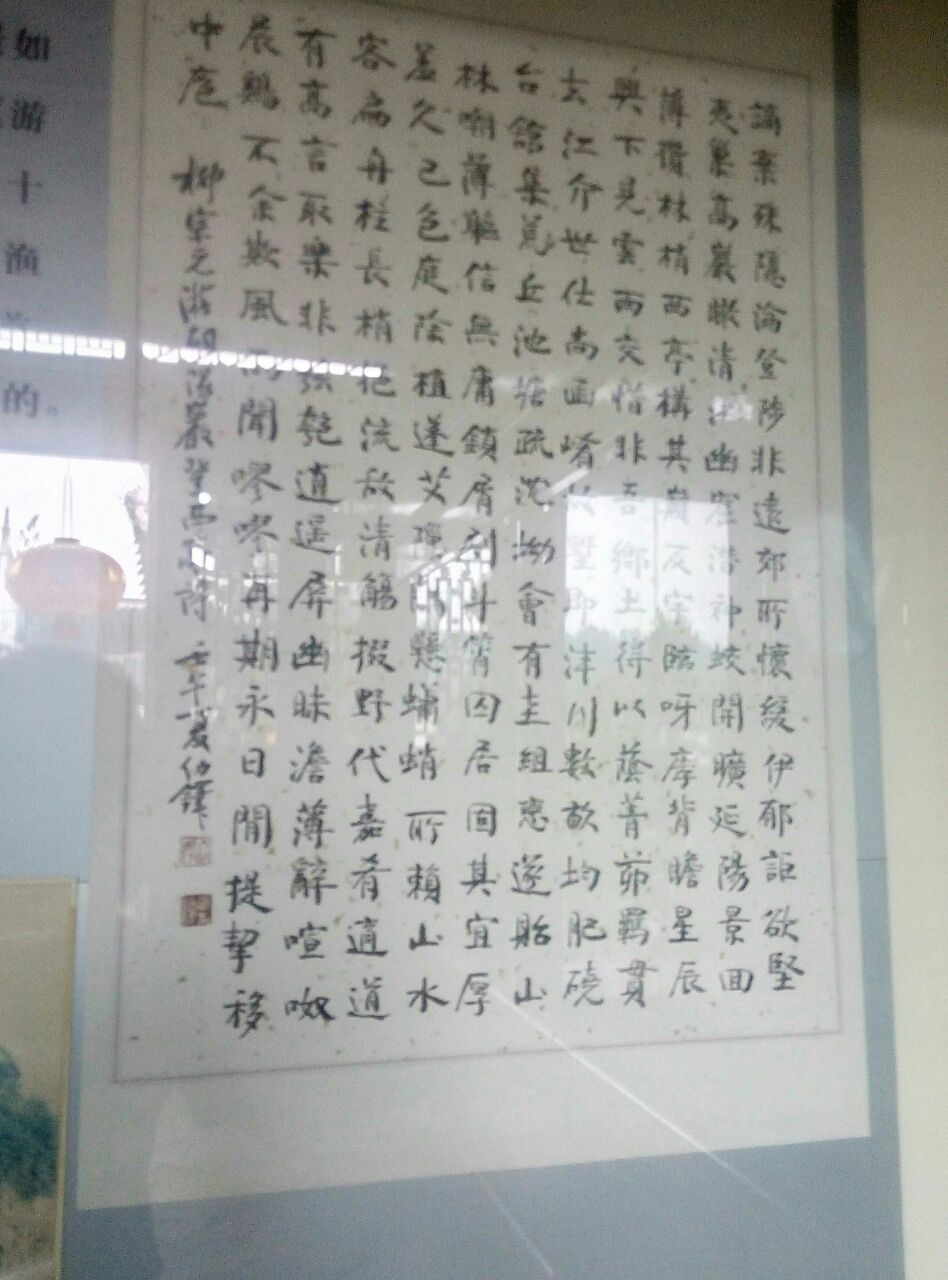 謫棄殊隱淪登陟非遠郊所懷緩伊郁詎欲堅
夷巢高巖瞰清江幽窟潜神蛟開曠延陽景回
薄攢林梢西亭構其巔反宇臨呀摩背瞻星辰
興下見雲雨交惜非吾鄉土得以蔭菁茆羈貫
去江介世仕尚函崤故墅即沣川數畝均肥磽
台館集荒丘池塘疏沈坳會有圭組恋遂貽山
林嘲薄軀信無庸鎖屑劇斗筲囚居固其宜厚
羞久已包庭除植蓬艾隙牖懸蟏蛸所賴山水
客扁舟枉長梢挹流敌清觴掇野代嘉肴適道
有高言取樂非弦匏逍遥屏幽昧澹薄辭喧呶
晨鷄不余欺風雨聞嘐嘐再期永日閒提挈移
中庖 柳宗元游朝陽巖登西亭詩 壬午夏
如
游
十
渔
的。